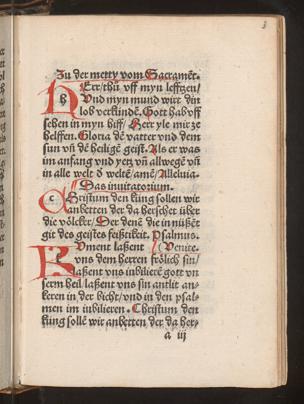 Zu der metty vom Sacramēt.
Herr/thů vff myn lefftzen/
Vnd myn mund wirt din
lob verkündē. Gott hab vff
sehen in myn hiff/ Herr yle mir ze
helffen. Gloria dē vatter vnd dem
sun vñ dē heiligē geist. Als er was
im anfang vnd yetz vñ allwegē vñ
in alle welt d̄ weltē/amē/Alleluia.
Das inuitatorium.
Christum den küng sollen wir
anbetten der da herschet über
die völcker/ Der denē die in nüßēt
git des geistes feißtikeit. Psalmus.
Kument laßent Venite.
vns dem herren frölich sin/
laßent vns iubilierē gott vn
serm heil laßent vns sin antlit an-
keren in der bicht/vnd in den psal-
men im iubilieren. Christum den
küng sollē wir anbetten der da her-
a iij